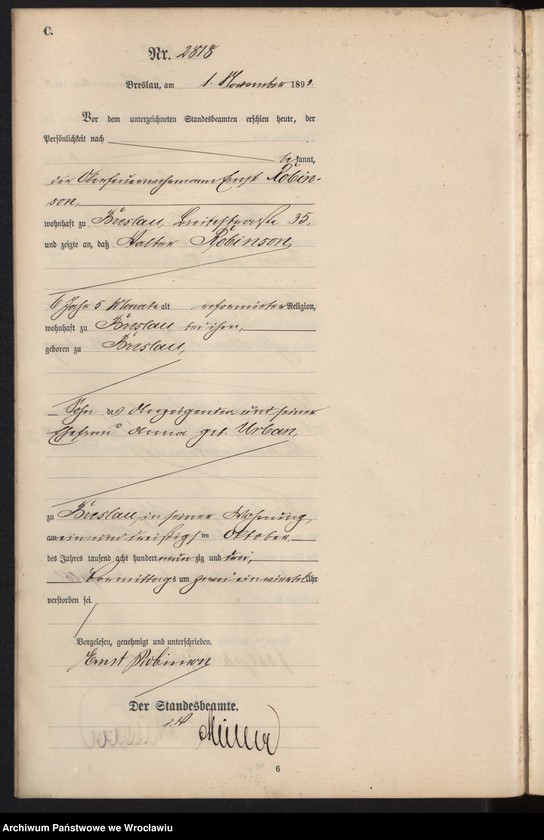 C.
Nr. 2818
Breslau, am 1. November 189
Vor dem unterzeichneten Standesbeamten erschien heute, der
Persönlichkeit nach
bekannt,
der Oberfeuerwehrmann Ernst Robin-
son,
wohnhaft zu Breslau, Breitestraße 35,
und zeigte an, daß Walter Robinson,
6 Jahr 5 Monate alt reformirter Religion,
wohnhaft zu Breslau bei ihm,
geboren zu Breslau,
Sohn des Anzeigenden und seiner
Ehefrau Anna geb. Urban,
zu Breslau, in seiner Wohnung,
am ein und dreißigsten Oktober
des Jahres tausend acht hundert neunzig und drei,
Vormittags um zwei einviertel Uhr
verstorben sei.
Vorgelesen, genehmigt und unterschrieben.
Ernst Robinson
Der Standesbeamte.
Müller
6
Archiwum Państwowe we Wrocławiu